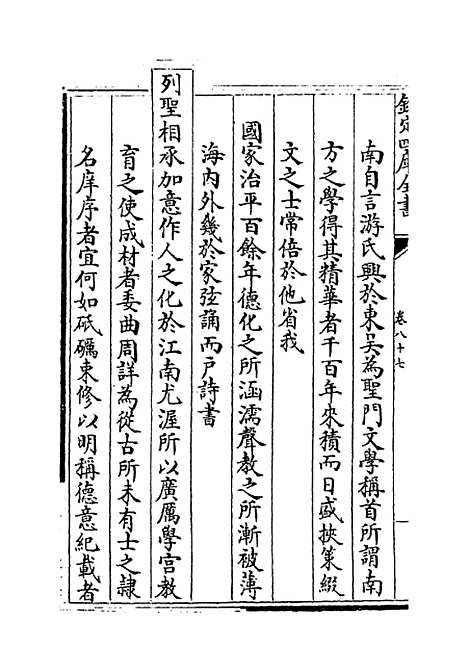 欽定四庫全書
卷八十七
南自言游氏興於東吳為聖門文學稱首所謂南
方之學得其精華者千百年來積而日盛挾策綴
文之士常倍於他省我
國家治平百餘年德化之所涵濡聲教之所漸被薄
海內外幾於家弦誦而戶詩書
列聖相承加意作人之化於江南尤渥所以廣厲學宫教
育之使成材者委曲周詳為從古所未有士之隸
名庠序者宜何如砥礪束修以明稱德意紀載者